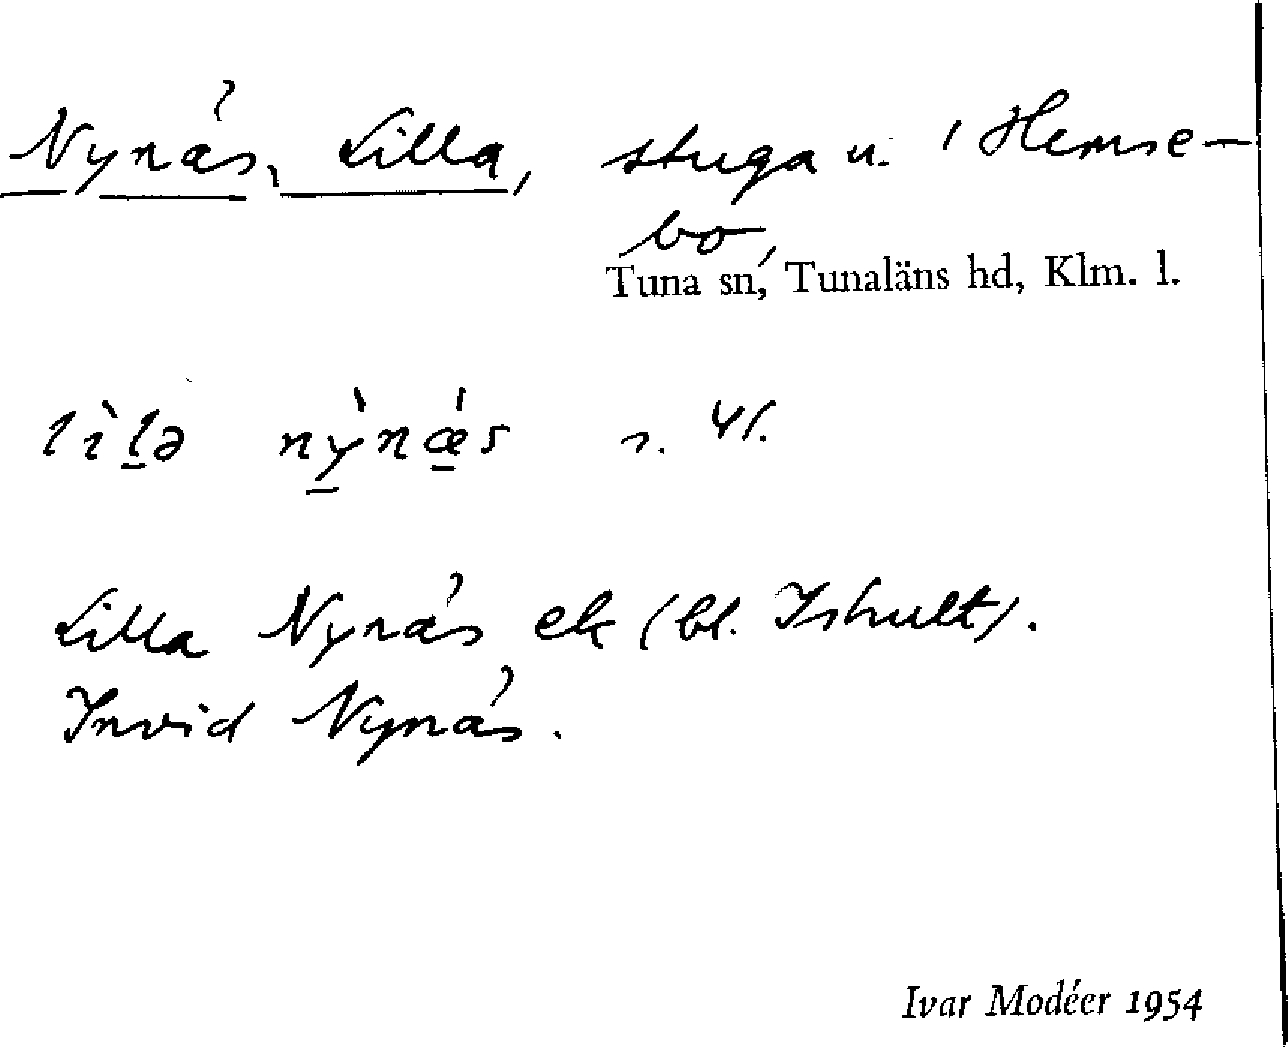 Nynäs, Lilla, stuga u. 1 Hemse-
bo,
Tuna sn, Tunaläns hd, Klm. l.
lìlə nỳnæ̀s n. 41.
Lilla Nynäs ek (bl. Ishult).
Invid Nynäs.
Ivar Modéer 1954